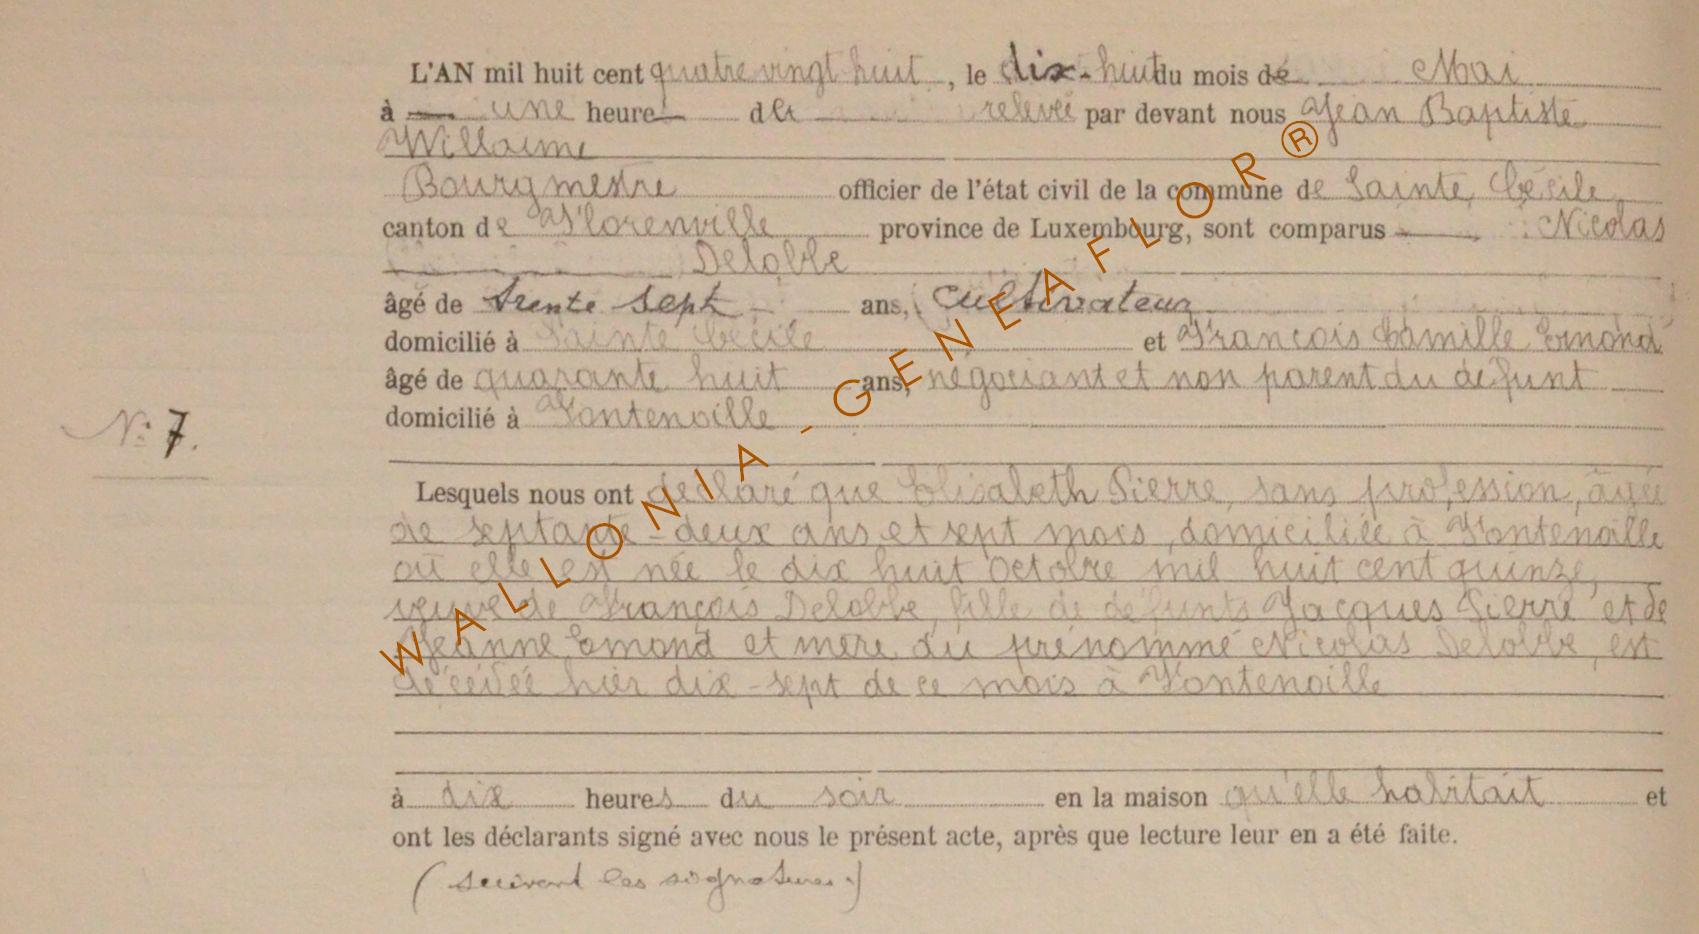 L'AN mil huit cent quatre vingt huit, le dix-huit du mois de Mai
à une heure de relevée par devant nous Jean Baptiste
Willaime
Bourgmestre officier de l'état civil de la commune de Sainte Cécile
canton de Florenville province de Luxembourg, sont comparus Nicolas
Delobbe
âgé de trente sept ans, cultivateur
domicilié à Sainte Cécile et François Camille Emond
âgé de quarante huit ans, négociant et non parent du défunt
domicilié à Fontenoille
N° 7.
Lesquels nous ont déclaré que Elisabeth Pierre, sans profession, âgée
de septante-deux ans et sept mois, domiciliée à Fontenoille
où elle est née le dix huit Octobre mil huit cent quinze,
veuve de François Delobbe, fille de défunts Jacques Pierre et de
Jeanne Emond et mère du prénommé Nicolas Delobbe, est
décédée hier dix-sept de ce mois à Fontenoille
à dix heures du soir en la maison qu'elle habitait et
ont les déclarants signé avec nous le présent acte, après que lecture leur en a été faite.
(suivent les signatures.)
WALLONIA-GENEAFLOR®